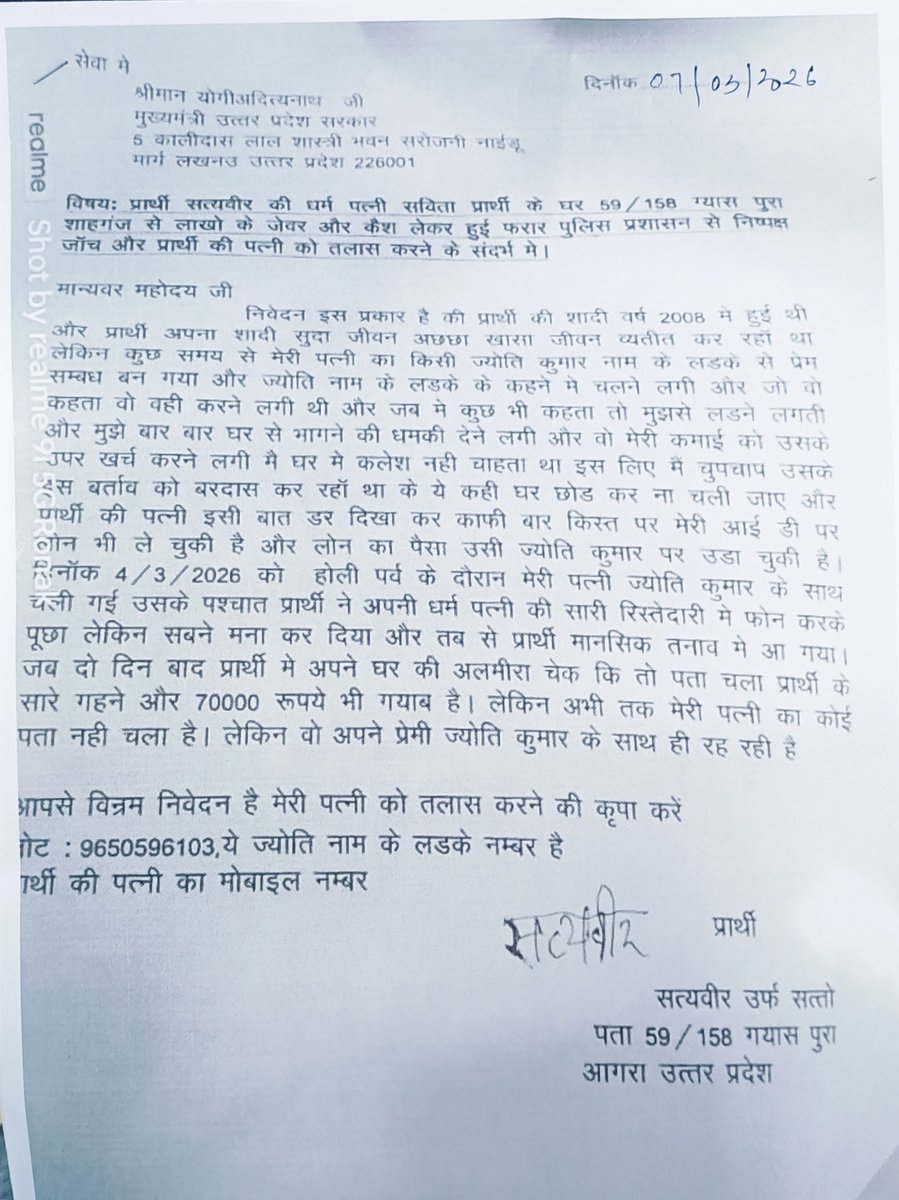 सेवा मे
दिनॉक 07/03/2026
श्रीमान योगीअदित्यनाथ जी
मुख्यमंत्री उत्तर प्रदेश सरकार
5 कालीदास लाल शास्त्री भवन सरोजनी नाईडू
मार्ग लखनउ उत्तर प्रदेश 226001
विषय: प्रार्थी सत्यवीर की धर्म पत्नी सविता प्रार्थी के घर 59/158 ग्यास पुरा
शाहगंज से लाखो के जेवर और कैश लेकर हुई फरार पुलिस प्रशासन से निष्पक्ष
जॉच और प्रार्थी की पत्नी को तलास करने के संदर्भ मे।
मान्यवर महोदय जी
निवेदन इस प्रकार है की प्रार्थी की शादी वर्ष 2008 मे हुई थी
और प्रार्थी अपना शादी सुदा जीवन अछछा खासा जीवन व्यतीत कर रहॉ था
लेकिन कुछ समय से मेरी पत्नी का किसी ज्योति कुमार नाम के लडके से प्रेम
सम्बध बन गया और ज्योति नाम के लडके के कहने मे चलने लगी और जो वो
कहता वो वही करने लगी थी और जब मे कुछ भी कहता तो मुझसे लडने लगती
और मुझे बार बार घर से भागने की धमकी देने लगी और वो मेरी कमाई को उसके
उपर खर्च करने लगी मै घर मे कलेश नही चाहता था इस लिए मैं चुपचाप उसके
इस बर्ताव को बरदास कर रहॉ था के ये कही घर छोड कर ना चली जाए और
प्रार्थी की पत्नी इसी बात डर दिखा कर काफी बार किस्त पर मेरी आई डी पर
लोन भी ले चुकी है और लोन का पैसा उसी ज्योति कुमार पर उडा चुकी है।
दिनॉक 4/3/2026 को होली पर्व के दौरान मेरी पत्नी ज्योति कुमार के साथ
चली गई उसके पश्चात प्रार्थी ने अपनी धर्म पत्नी की सारी रिस्तेदारी मे फोन करके
पूछा लेकिन सबने मना कर दिया और तब से प्रार्थी मानसिक तनाव मे आ गया।
जब दो दिन बाद प्रार्थी मे अपने घर की अलमीरा चेक कि तो पता चला प्रार्थी के
सारे गहने और 70000 रूपये भी गयाब है। लेकिन अभी तक मेरी पत्नी का कोई
पता नही चला है। लेकिन वो अपने प्रेमी ज्योति कुमार के साथ ही रह रही है
आपसे विन्रम निवेदन है मेरी पत्नी को तलास करने की कृपा करें
नोट : 9650596103,ये ज्योति नाम के लडके नम्बर है
प्रार्थी की पत्नी का मोबाइल नम्बर
सत्यवीर प्रार्थी
सत्यवीर उर्फ सत्तो
पता 59/158 गयास पुरा
आगरा उत्तर प्रदेश
realme Shot by realme 9i 5G